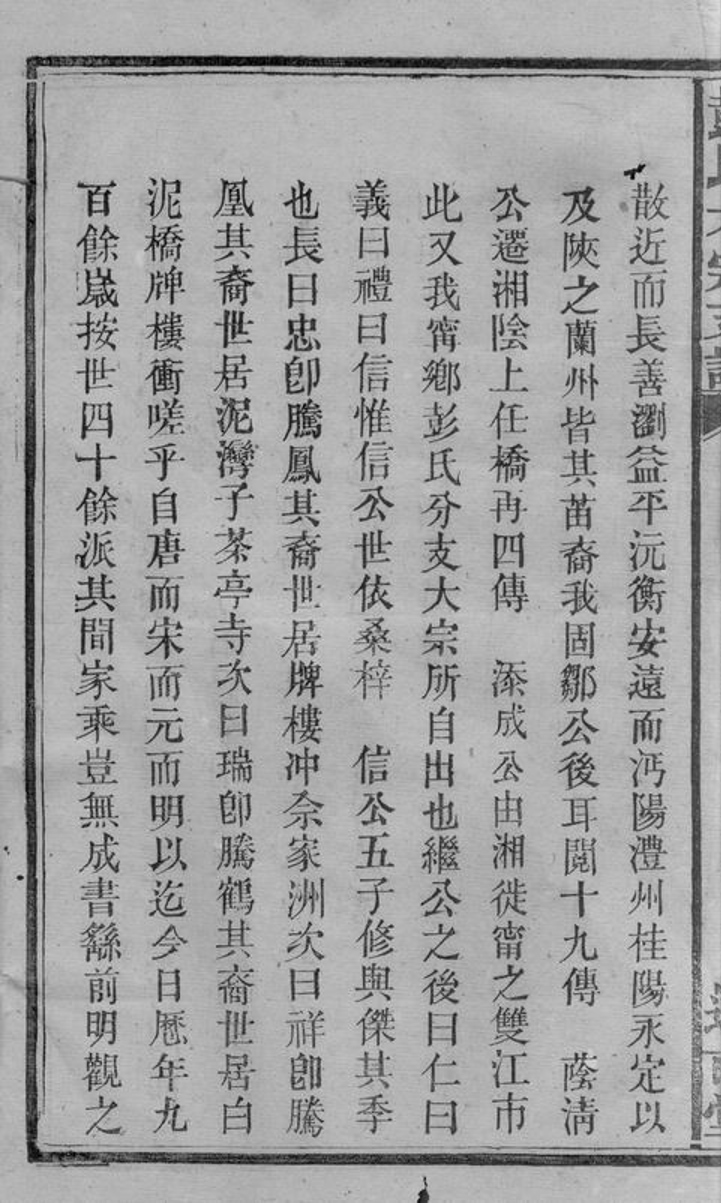 散近而長善瀏益平沅衡安遠而沔陽澧州桂陽永定以
及陝之蘭州皆其苗裔我固鄒公後耳閱十九傳　蔭淸
公遷湘陰上任橋再四傳　添成公由湘徙甯之雙江市
此又我甯鄕彭氏分支大宗所自出也繼公之後曰仁曰
義曰禮曰信惟信公世依桑梓　信公五子修與傑其季
也長曰忠卽騰鳳其裔世居牌樓冲佘家洲次曰祥卽騰
凰其裔世居泥灣子茶亭寺次曰瑞卽騰鶴其裔世居白
泥橋牌樓衝嗟乎自唐而宋而元而明以迄今日厯年九
百餘歲按世四十餘派其間家乘豈無成書繇前明觀之